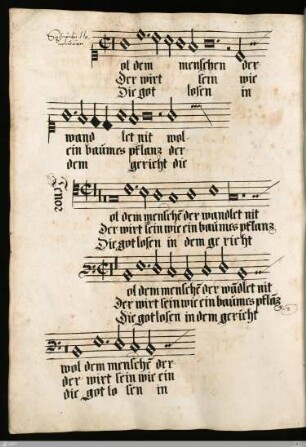 ol dem menschen der
Der wirt sein wie
Die got losen in
wand let nit wol
ein baumes pflanz der
dem gericht die
Tenor
ol dem mensche͂ der wandlet nit
Der wirt sein wie ein baumes pflanz
Die got losen in dem ge richt
ol dem mensche͂ der wa͂dlet nit
Der wirt sein wie ein baumes pfla͂z
Die got losen in dem gericht
wol dem mensche͂ der
der wirt sein wie ein
die got lo sen in